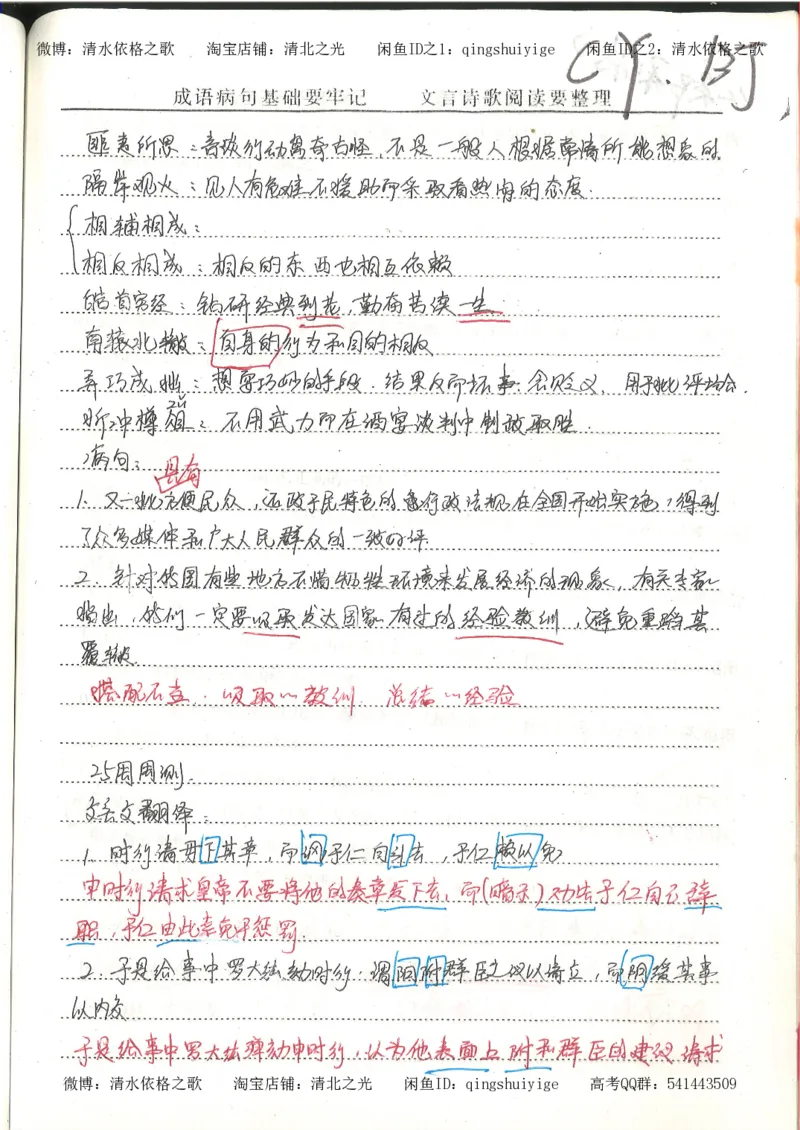 微博：清水依格之歌 淘宝店铺：清北之光 闲鱼ID之1：qingshuiyige 闲鱼ID之2：清水依格之歌
CY.
成语病句基础要牢记 文言诗歌阅读要整理
匪夷所思：言谈行动离奇古怪，不是一般人根据常情所能想象的
隔岸观火：见人有危难不援助而采取看热闹的态度.
相辅相成：
相反相成：相反的东西也相互依赖
皓首穷经：钻研经典到老，勤奋苦读一生
南辕北辙：自身的行为和目的相反
弄巧成拙：想耍巧妙的手段.结果反而坏事.含贬义，用于此评场合.
zǔ
折冲樽俎：不用武力而在酒宴谈判中制敌取胜.
病句：
具有
1、又一批方便民众，还政于民特色的行政法规在全国开始实施，得到
了众多媒体和广大人民群众的一致好评
2.针对我国有些地方不惜牺牲环境来发展经济的现象，有关专家
指出，我们一定要吸取发达国家有过的经验教训，避免重蹈其
覆辙.
搭配不当.吸取～教训 总结～经验
25周周测.
文言文翻译：
1.时行请毋下其章，而讽于仁自引去，于仁赖以免
申时行请求皇帝不要将他的奏章发下去，而(暗示)劝告于仁自己辞
职，于仁由此幸免于惩罚.
2.于是给事中罗大纮劾时行.谓阳附群臣之议以请立，而阴缓其事
以内交
于是给事中罗大纮弹劾申时行，认为他表面上附和群臣的建议请求
微博：清水依格之歌 淘宝店铺：清北之光 闲鱼ID：qingshuiyige 高考QQ群：541443509